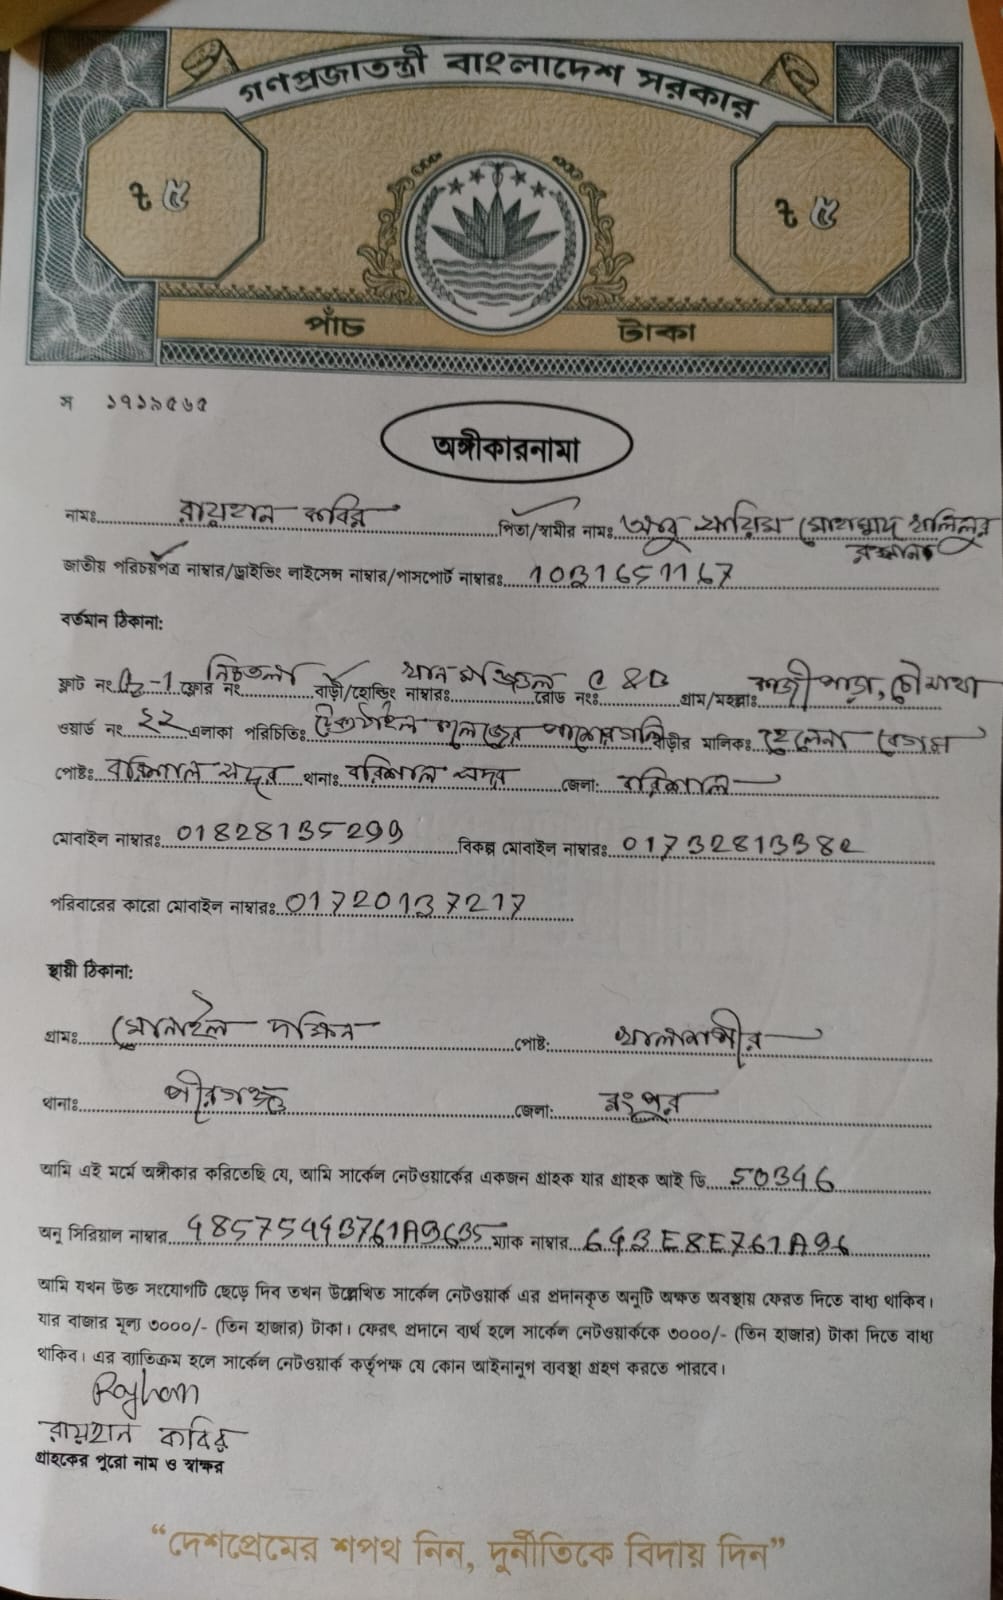 গণপ্রজাতন্ত্রী বাংলাদেশ সরকার
৳ ৫
৳ ৫
পাঁচ টাকা
স ১৭১৯৫৬৫
অঙ্গীকারনামা
নামঃ রায়হান কবির পিতা/স্বামীর নামঃ আবু মোহাম্মদ খলিলুর
রহমান
জাতীয় পরিচয়পত্র নাম্বার/ড্রাইভিং লাইসেন্স নাম্বার/পাসপোর্ট নাম্বারঃ 1031651167
বর্তমান ঠিকানা:
ফ্লাট নং -1 ফ্লোর নং নিচতলা বাড়ী/হোল্ডিং নাম্বারঃ খান মঞ্জিল রোড নং C & B গ্রাম/মহল্লাঃ কাজীপাড়া, চৌমাথা
ওয়ার্ড নং ২২ এলাকা পরিচিতিঃ টেক্সটাইল কলেজের পাশের গলি বাড়ীর মালিকঃ হেলেনা বেগম
পোষ্টঃ বরিশাল সদর থানাঃ বরিশাল সদর জেলা: বরিশাল
মোবাইল নাম্বারঃ 01828135299 বিকল্প মোবাইল নাম্বারঃ 01732813382
পরিবারের কারো মোবাইল নাম্বারঃ 01720137217
স্থায়ী ঠিকানা:
গ্রামঃ দক্ষিন পোষ্ট: খালাশপীর
থানাঃ পীরগঞ্জ জেলা: রংপুর
আমি এই মর্মে অঙ্গীকার করিতেছি যে, আমি সার্কেল নেটওয়ার্কের একজন গ্রাহক যার গ্রাহক আই ডি 50346
অনু সিরিয়াল নাম্বার 48575443761A9635 ম্যাক নাম্বার 643E8E761A96
আমি যখন উক্ত সংযোগটি ছেড়ে দিব তখন উল্লেখিত সার্কেল নেটওয়ার্ক এর প্রদানকৃত অনুটি অক্ষত অবস্থায় ফেরত দিতে বাধ্য থাকিব।
যার বাজার মূল্য ৩০০০/- (তিন হাজার) টাকা। ফেরৎ প্রদানে ব্যর্থ হলে সার্কেল নেটওয়ার্ককে ৩০০০/- (তিন হাজার) টাকা দিতে বাধ্য
থাকিব। এর ব্যতিক্রম হলে সার্কেল নেটওয়ার্ক কর্তৃপক্ষ যে কোন আইনানুগ ব্যবস্থা গ্রহণ করতে পারবে।
Rayhan
রায়হান কবির
গ্রাহকের পুরো নাম ও স্বাক্ষর
“দেশপ্রেমের শপথ নিন, দুর্নীতিকে বিদায় দিন”